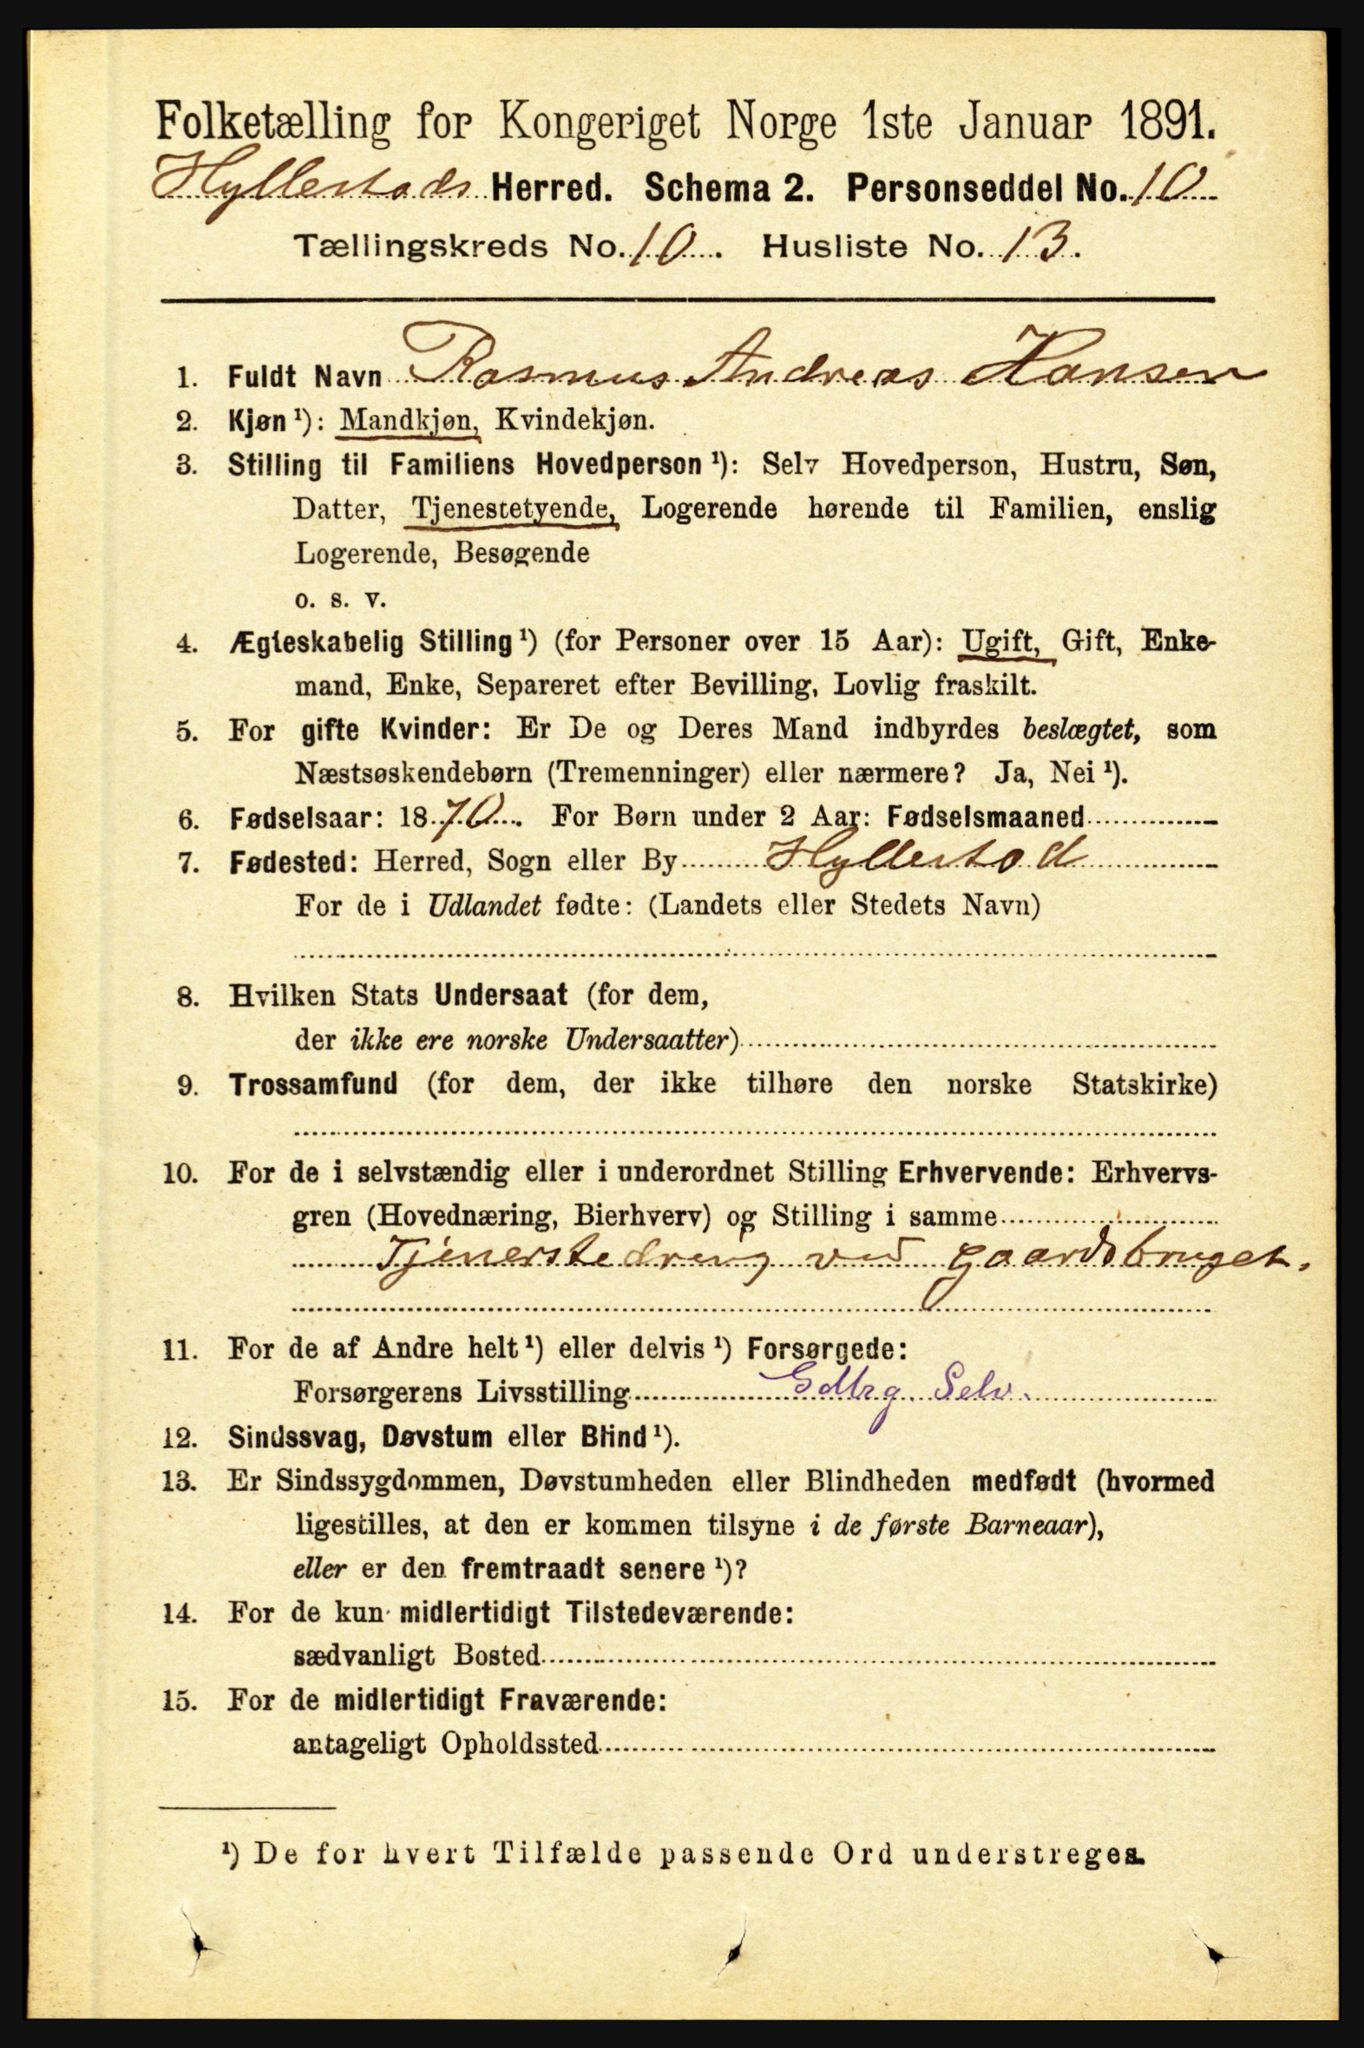 Folketælling for Kongeriget Norge 1ste Januar 1891.
Hyllestads Herred. Schema 2. Personseddel No. 10
Tællingskreds No. 10. Husliste No. 13.
1. Fuldt Navn Rasmus Andreas Hansen
2. Kjøn ¹): Mandkjøn, Kvindekjøn.
3. Stilling til Familiens Hovedperson ¹): Selv Hovedperson, Hustru, Søn,
Datter, Tjenestetyende, Logerende hørende til Familien, enslig
Logerende, Besøgende
o. s. v.
4. Ægteskabelig Stilling ¹) (for Personer over 15 Aar): Ugift, Gift, Enke-
mand, Enke, Separeret efter Bevilling, Lovlig fraskilt.
5. For gifte Kvinder: Er De og Deres Mand indbyrdes beslægtet, som
Næstsøskendebørn (Tremenninger) eller nærmere? Ja, Nei ¹).
6. Fødselsaar: 1870. For Børn under 2 Aar: Fødselsmaaned
7. Fødested: Herred, Sogn eller By Hyllestad
For de i Udlandet fødte: (Landets eller Stedets Navn)
8. Hvilken Stats Undersaat (for dem,
der ikke ere norske Undersaatter)
9. Trossamfund (for dem, der ikke tilhøre den norske Statskirke)
10. For de i selvstændig eller i underordnet Stilling Erhvervende: Erhvervs-
gren (Hovednæring, Bierhverv) og Stilling i samme
Tjenerstedreng ved gaardsbruget.
11. For de af Andre helt ¹) eller delvis ¹) Forsørgede:
Forsørgerens Livsstilling Gdbrg. Selv.
12. Sindssvag, Døvstum eller Blind ¹).
13. Er Sindssygdommen, Døvstumheden eller Blindheden medfødt (hvormed
ligestilles, at den er kommen tilsyne i de første Barneaar),
eller er den fremtraadt senere ¹)?
14. For de kun midlertidigt Tilstedeværende:
sædvanligt Bosted
15. For de midlertidigt Fraværende:
antageligt Opholdssted
¹) De for hvert Tilfælde passende Ord understreges.